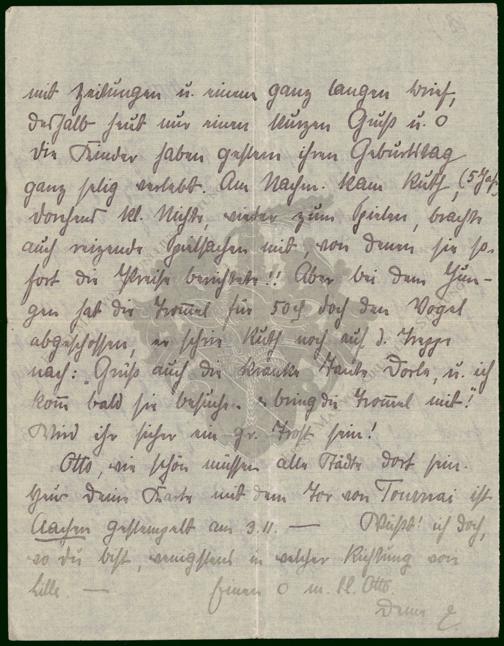 mit Zeitungen u. einem ganz langen Brief,
deshalb heut nur einen kurzen Gruß u. O
Die Kinder haben gestern ihren Geburtstag
ganz selig verlebt. Am Nachm. kam Ruth, (5 Jah.)
Dorchens kl. Nichte, wieder zum Spielen, brachte
auch reizende Spielsachen mit, von denen sie so-
fort die Preise berichtete!! Aber bei dem Jun-
gen hat die Trommel für 50 d doch den Vogel
abgeschossen, er schrie Ruth noch auf d. Treppe
nach: "Grüß auch die kranke Tante Dorle, u. ich
komm bald sie besuchen u. bring die Trommel mit"!
Wird ihr sicher ein gr. Trost sein!
Otto, wie schön müssen alle Städte dort sein.
Hier Deine Karte mit dem Tor von Tournai ist
Aachen gestempelt am 3.11. — Wüßt' ich doch,
wo du bist, wenigstens in welcher Richtung von
Lille. — Einen O m. kl. Otto.
Deine E.